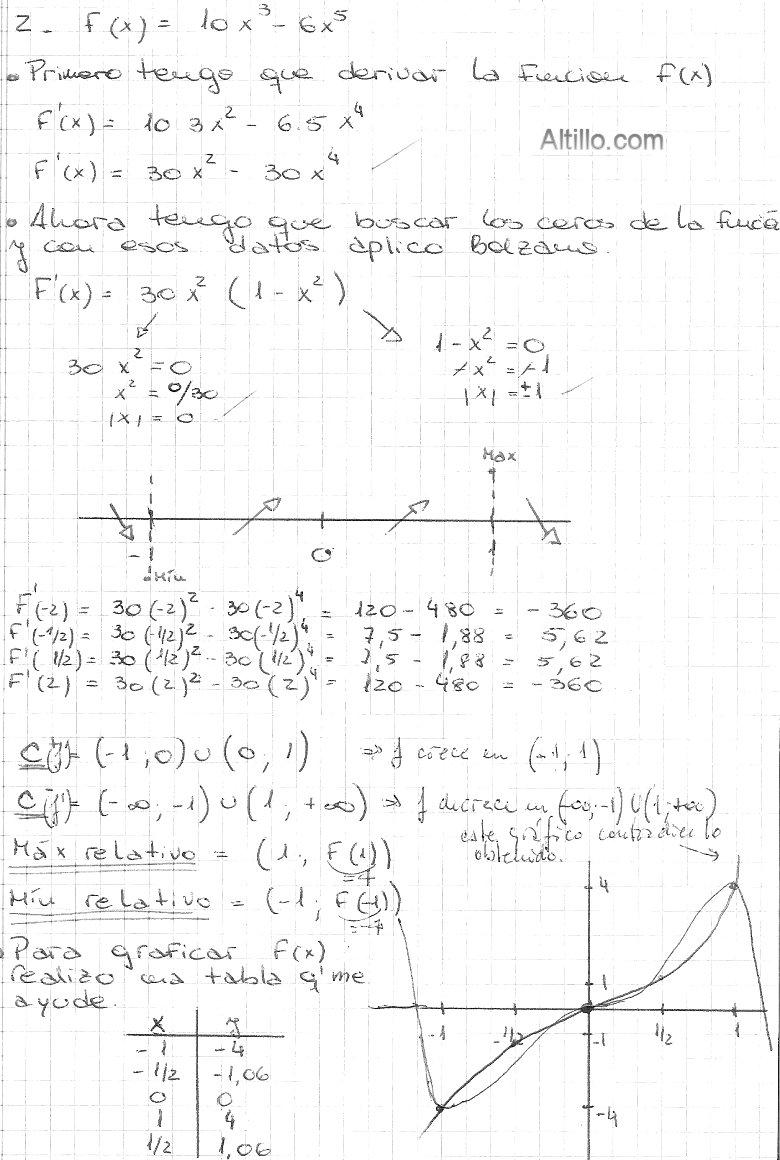 2_ F(x) = 10x³ - 6x⁵
• Primero tengo que derivar la Funcion F(x)
F'(x) = 10 3x² - 6.5 x⁴
Altillo.com
F'(x) = 30x² - 30x⁴
• Ahora tengo que buscar los ceros de la
y con esos datos aplico Bolzano.
F'(x) = 30x² (1 - x²)
30 x² = 0
x² = 0/30
|x| = 0
1 - x² = 0
-x² = -1
|x| = ±1
Max
0
Mín
F'(-2) = 30(-2)² - 30(-2)⁴ = 120 - 480 = -360
F'(-1/2) = 30(-1/2)² - 30(-1/2)⁴ = 7,5 - 1,88 = 5,62
F'(1/2) = 30(1/2)² - 30(1/2)⁴ = 7,5 - 1,88 = 5,62
F'(2) = 30(2)² - 30(2)⁴ = 120 - 480 = -360
= (-1;0) ∪ (0; 1) ⇒ f crece en (-1; 1)
= (-∞; -1) ∪ (1; +∞) ⇒ f decrece en (-∞;-1) ∪ (1;+∞)
este gráfico contradice lo
obtenido.
Máx relativo = (1; F(1))
=4
Mín relativo = (-1; F(-1))
=-4
Para graficar F(x)
realizo una tabla q' me
ayude.
x y
-1 -4
-1/2 -1,06
0 0
1 4
1/2 1,06
4
1
-1 -1/2 1/2 1
-1
-4